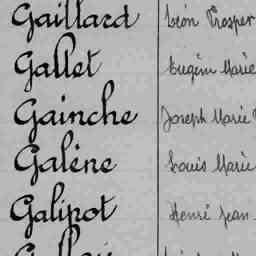 Gaillard Léon Prosper
Gallet Eugène Marie
Gainche Joseph Marie
Galène Louis Marie
Galipot Henri Jean